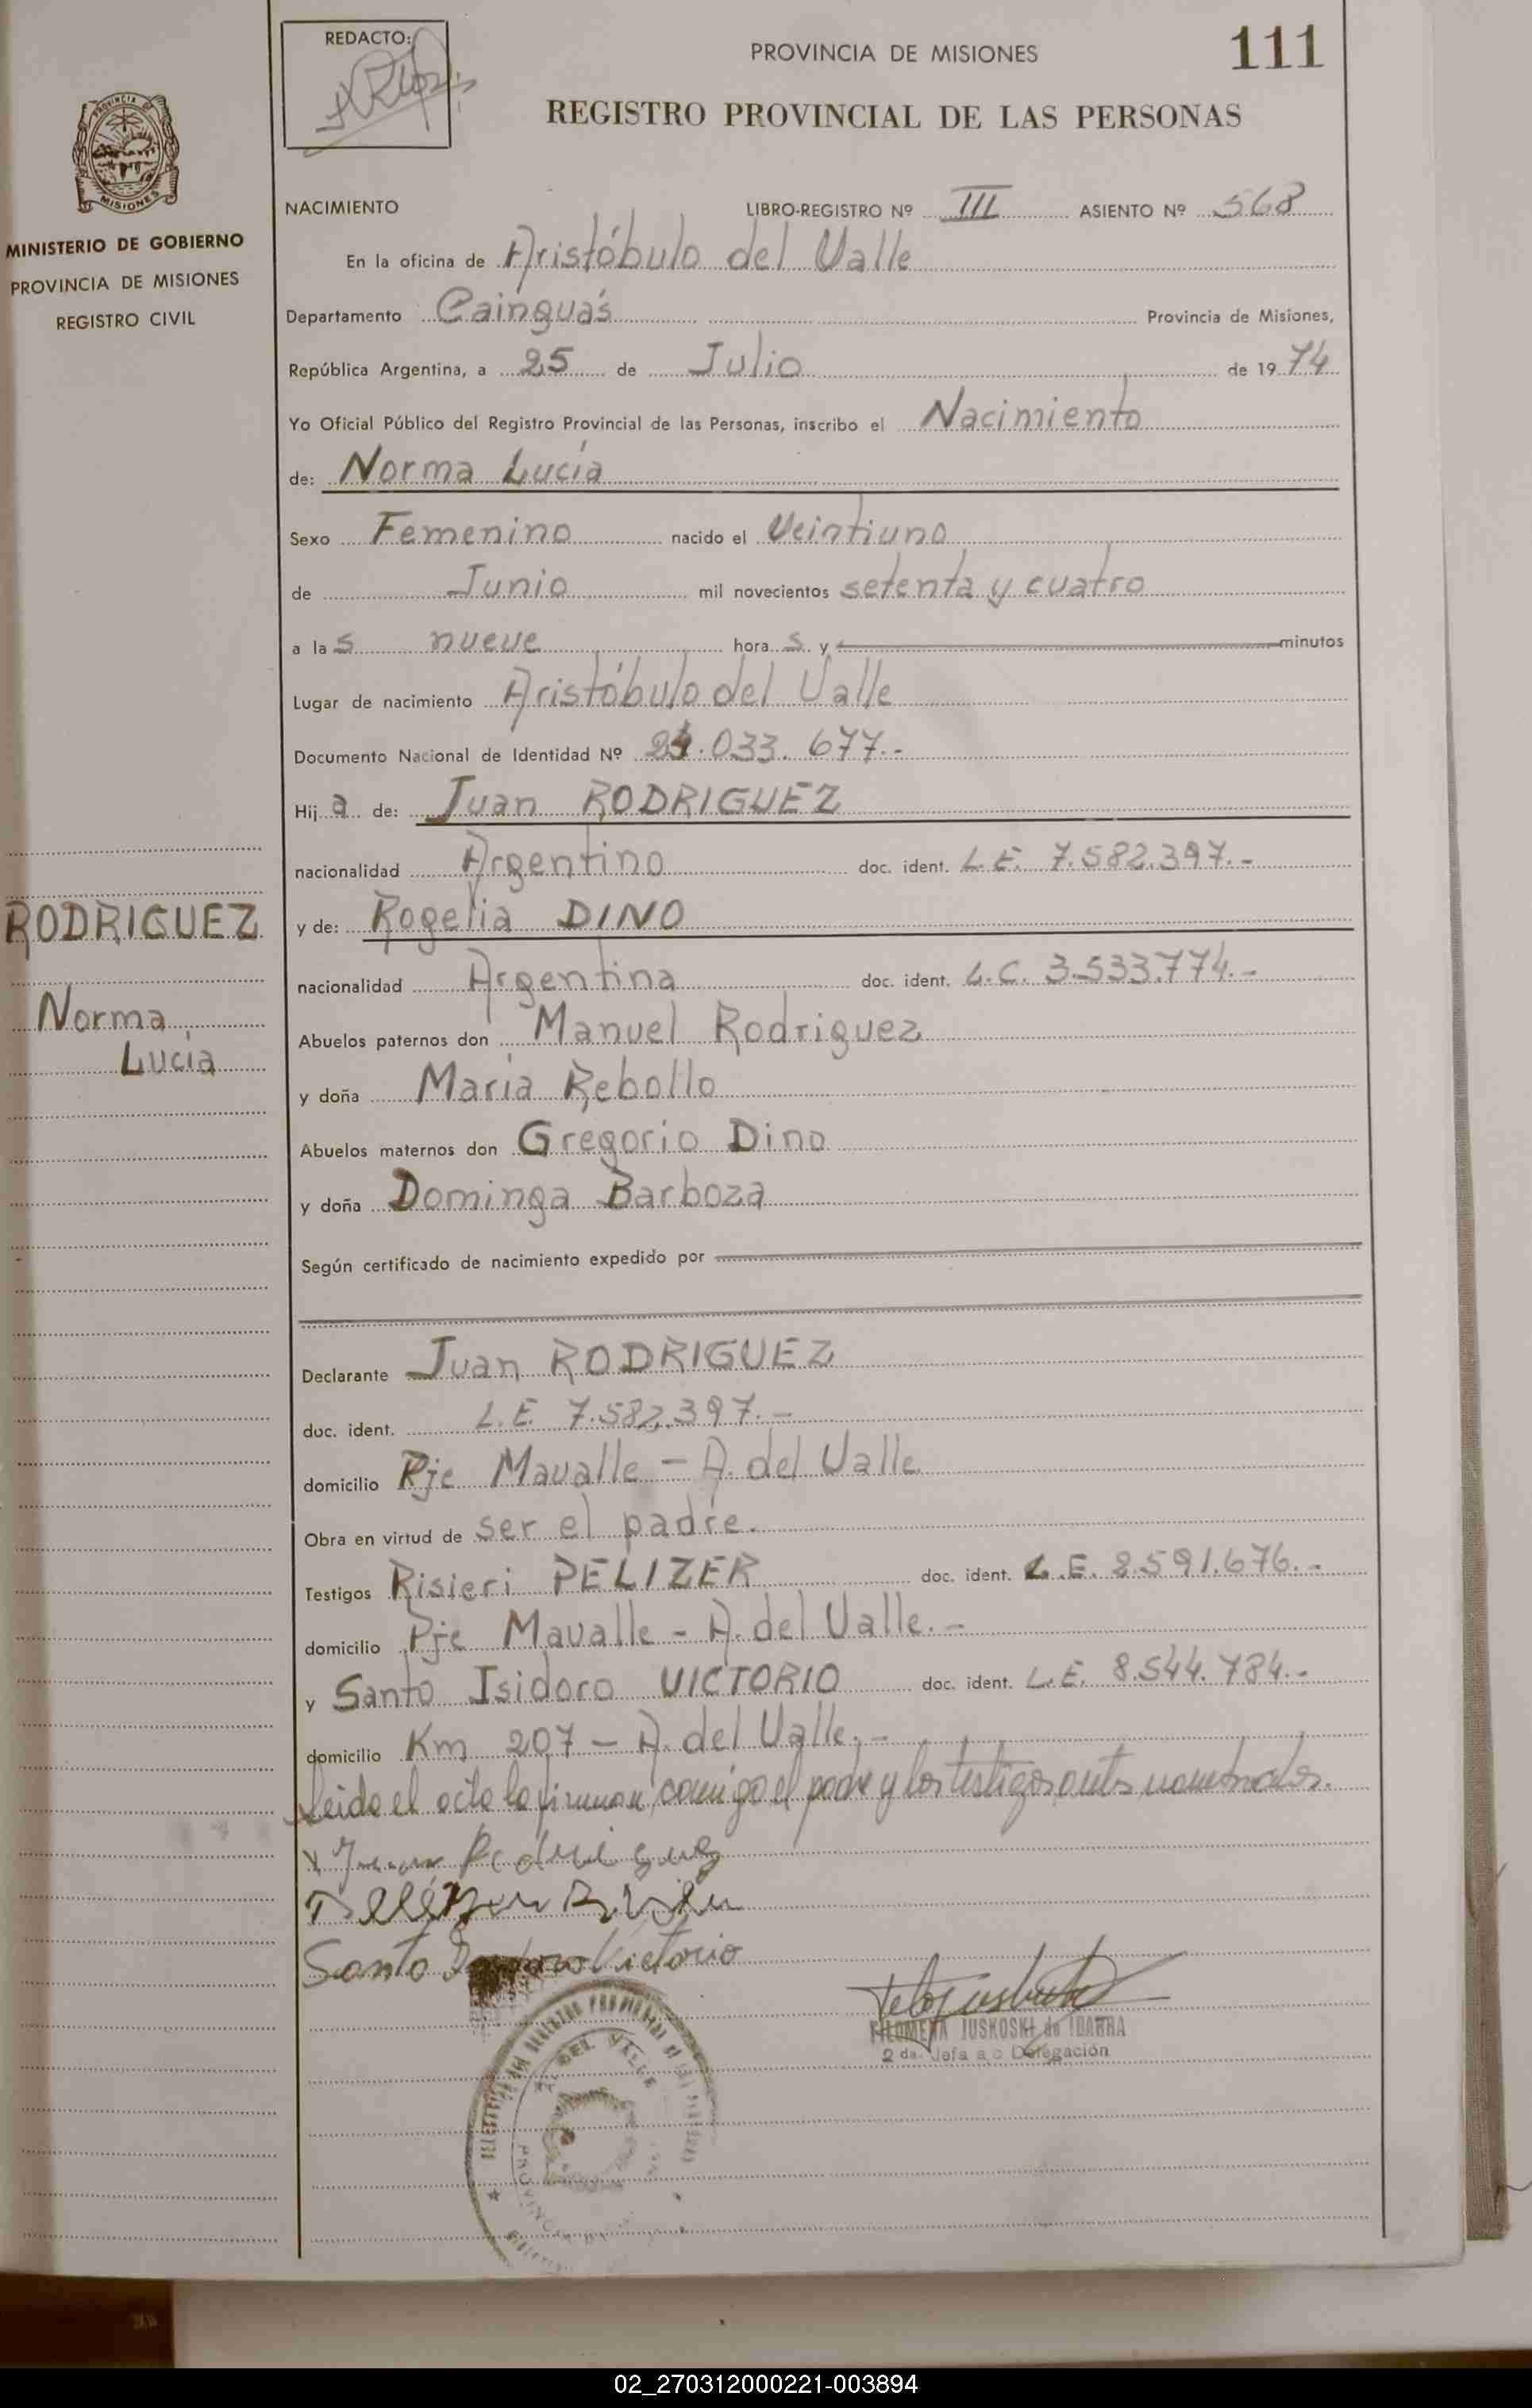 REDACTO:
PROVINCIA DE MISIONES
111
REGISTRO PROVINCIAL DE LAS PERSONAS
PROVINCIA DE
MISIONES
MINISTERIO DE GOBIERNO
PROVINCIA DE MISIONES
REGISTRO CIVIL
NACIMIENTO LIBRO-REGISTRO Nº III ASIENTO Nº 568
En la oficina de Aristóbulo del Valle
Departamento Cainguás Provincia de Misiones,
República Argentina, a 25 de Julio de 1974
Yo Oficial Público del Registro Provincial de las Personas, inscribo el Nacimiento
de: Norma Lucía
Sexo Femenino nacido el Veintiuno
de Junio mil novecientos setenta y cuatro
a las nueve horas y minutos
Lugar de nacimiento Aristóbulo del Valle
Documento Nacional de Identidad Nº 24.033.677.-
Hija de: Juan RODRIGUEZ
nacionalidad Argentino doc. ident. L.E. 7.582.397.-
RODRIGUEZ
y de: Rogelia DINO
nacionalidad Argentina doc. ident. L.C. 3.533.774.-
Norma
Lucía
Abuelos paternos don Manuel Rodriguez
y doña María Rebollo
Abuelos maternos don Gregorio Dino
y doña Dominga Barboza
Según certificado de nacimiento expedido por
Declarante Juan RODRIGUEZ
doc. ident. L.E. 7.582.397.-
domicilio Pje Mavalle - A. del Valle
Obra en virtud de ser el padre.
Testigos Risieri PELIZER doc. ident. L.E. 8.591.676.-
domicilio Pje Mavalle - A. del Valle.-
y Santo Isidoro VICTORIO doc. ident. L.E. 8.544.784.-
domicilio Km 207 - A. del Valle.-
Leido el acta la firman conmigo el padre y los testigos antes nombrados.
x Juan Rodriguez
Santo Victorio
FILOMENA JUSKOSKI de IBARRA
2 da. Jefa a c Delegación
DEL VALLE
PROVINCIA
02_270312000221-003894